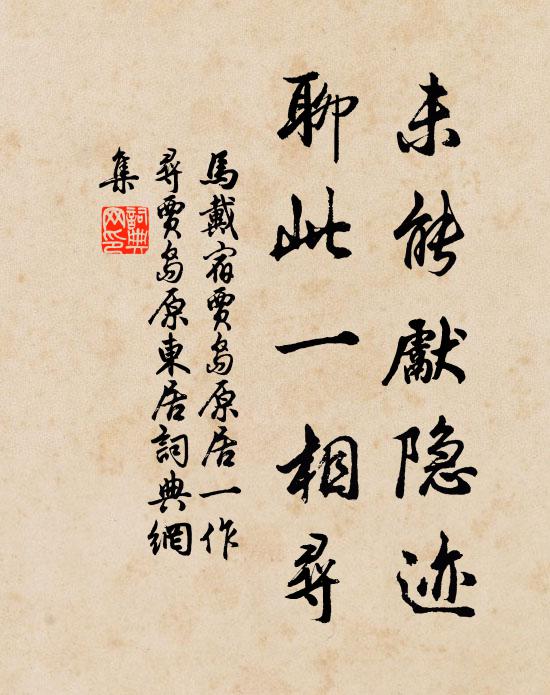 未能獻隐迹
聊此一相尋
馬戴宿賈島原居一作
尋賈島原東居詞典網
集
詞典
网印